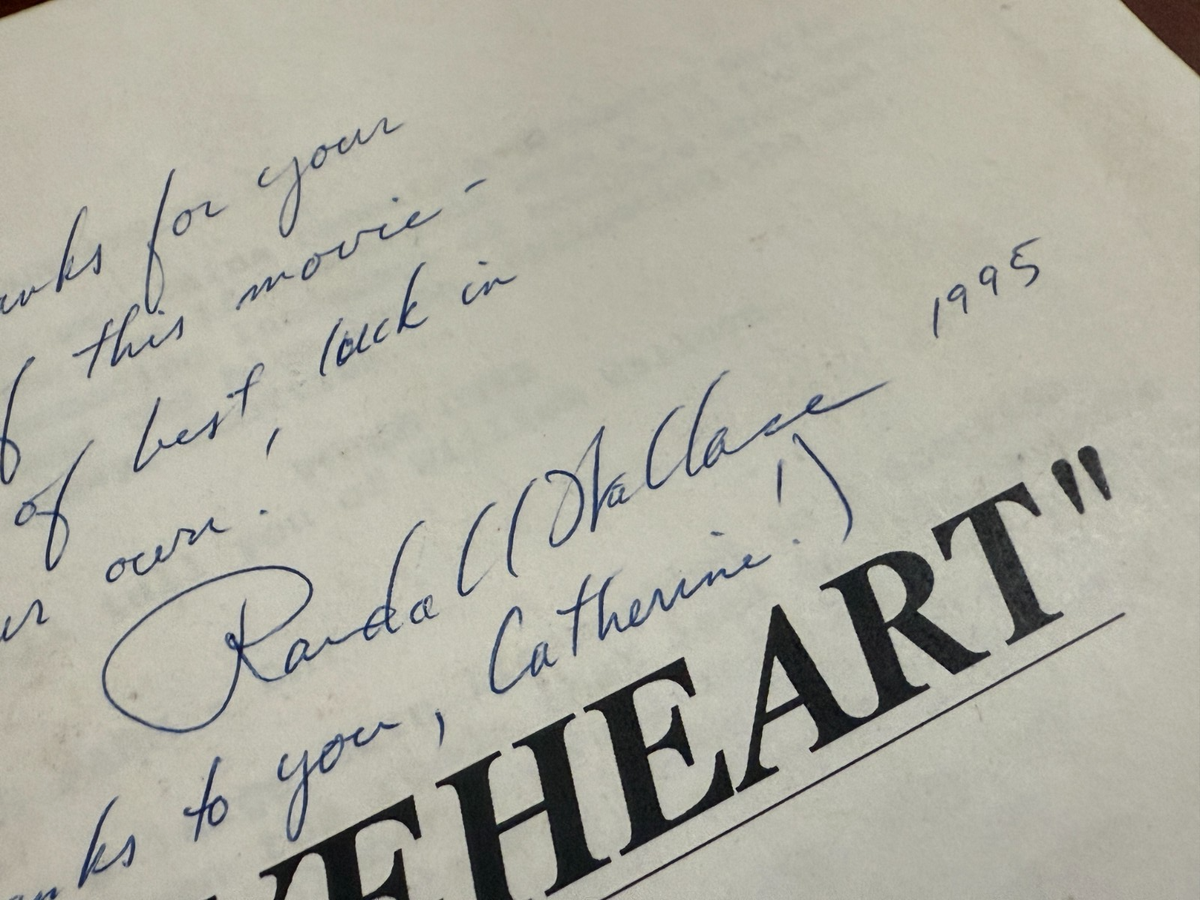 anks for your
f this movie-
of best luck in
ur own!
1995
Randall Wallace
anks to you, Catherine!)
VEHEART"